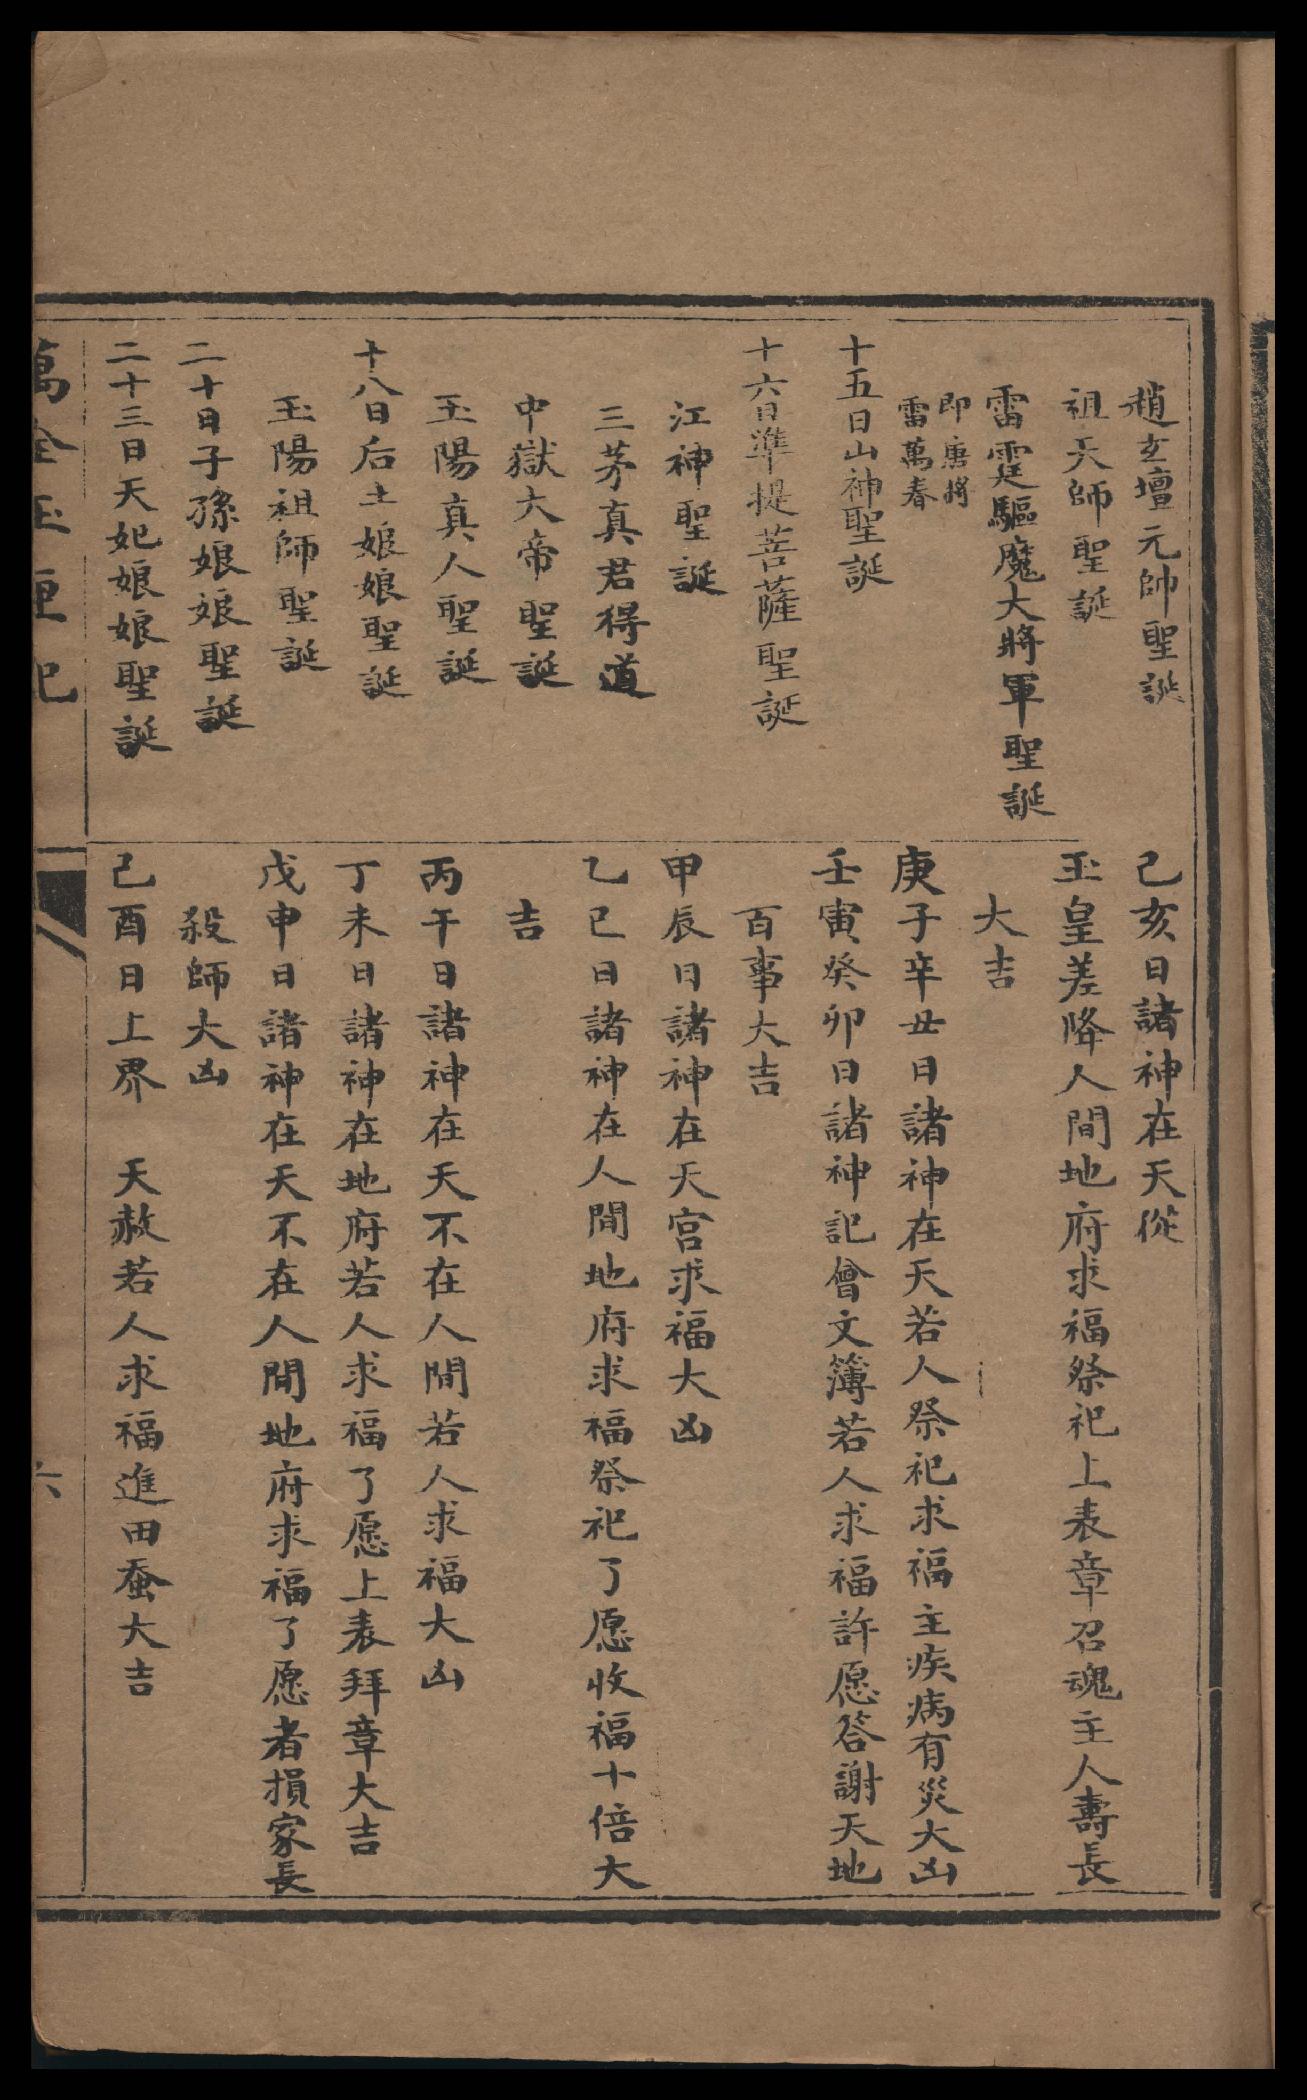 趙玄壇元帥聖誕
祖天師聖誕
雷霆驅魔大將軍聖誕
即唐將
雷萬春
十五日山神聖誕
十六日準提菩薩聖誕
江神聖誕
三茅真君得道
中獄大帝聖誕
玉陽真人聖誕
十八日后土娘娘聖誕
玉陽祖師聖誕
二十日子孫娘娘聖誕
二十三日天妃娘娘聖誕
己亥日諸神在天從
玉皇差降人間地府求福祭祀上表章召魂主人壽長
大吉
庚子辛丑日諸神在天若人祭祀求福主疾病有災大凶
壬寅癸卯日諸神記會文簿若人求福許愿答謝天地
百事大吉
甲辰日諸神在天宮求福大凶
乙巳日諸神在人間地府求福祭祀了愿收福十倍大
吉
丙午日諸神在天不在人間若人求福大凶
丁未日諸神在地府若人求福了愿上表拜章大吉
戊申日諸神在天不在人間地府求福了愿者損家長
殺師大凶
己酉日上界　天赦若人求福進田蚕大吉
萬全玉匣記
六